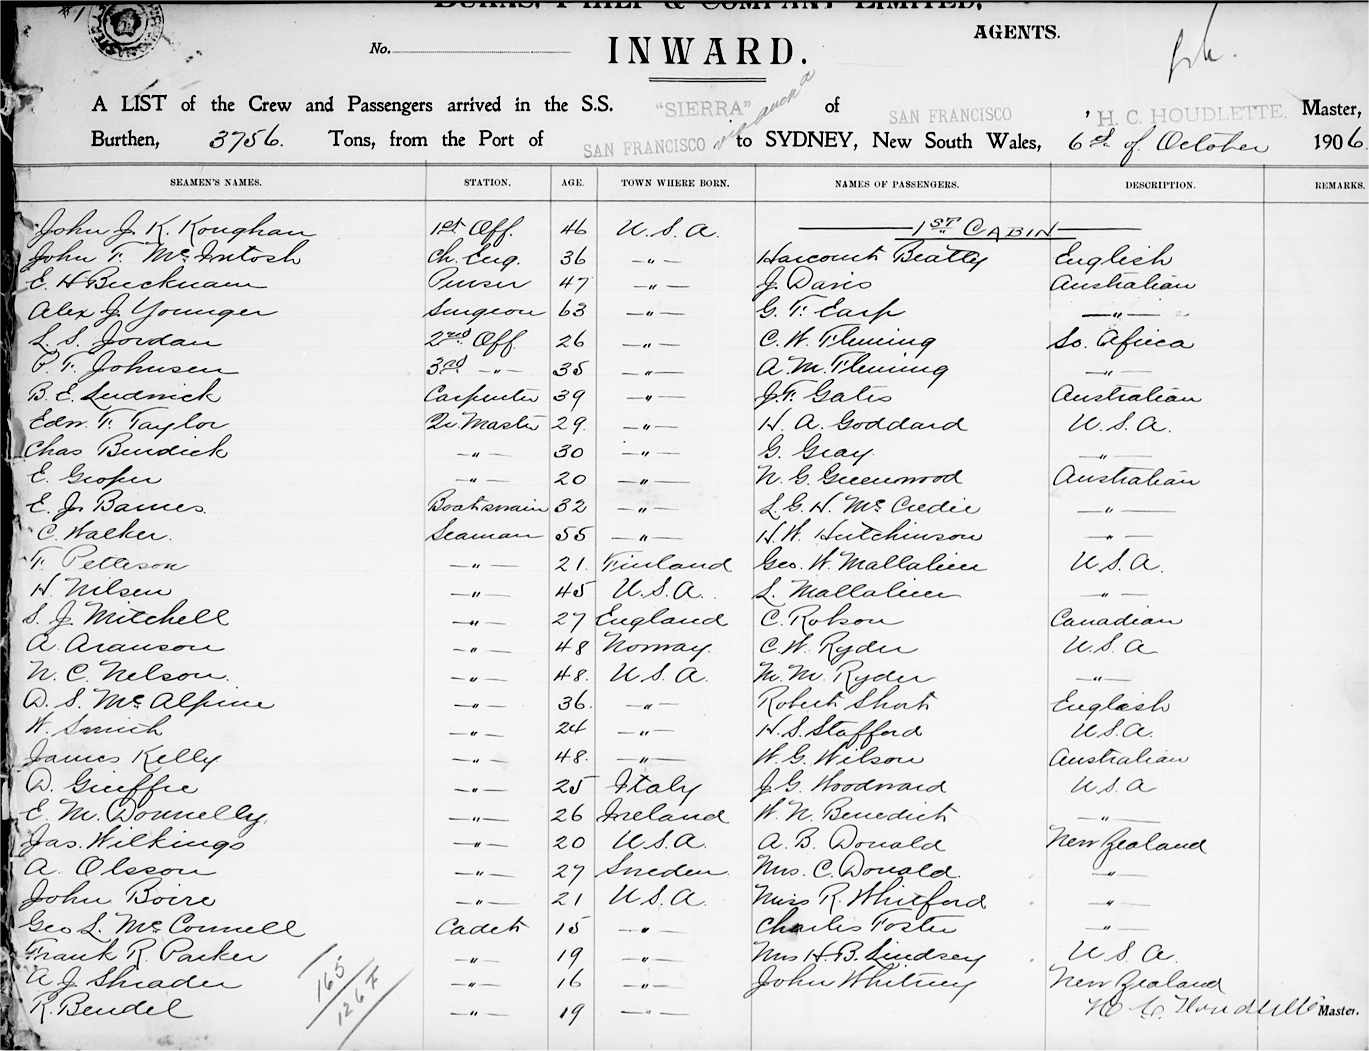 BURNS, PHILP & COMPANY LIMITED,
AGENTS.
No.
INWARD.
A LIST of the Crew and Passengers arrived in the S.S. "SIERRA" of SAN FRANCISCO, H. C. HOUDLETTE. Master,
Burthen, 3756. Tons, from the Port of SAN FRANCISCO to SYDNEY, New South Wales, 6th of October 1906.
SEAMEN'S NAMES. STATION. AGE. TOWN WHERE BORN. NAMES OF PASSENGERS. DESCRIPTION. REMARKS.
John J. K. Koughan 1st Off. 46 U.S.A. 1ST CABIN
John F. McIntosh Ch. Eng. 36 —"— Harcourt Beatty English
E. H Bucknam Purser 47 —"— J. Davis Australian
Alex J. Younger Surgeon 63 —"— G. F. Earp —"—
L. S. Jordan 2nd Off 26 —"— C. W. Fleming So. Africa
P. F. Johnsen 3rd —"— 35 —"— A. M. Fleming —"—
B. E. Ludwick Carpenter 39 —"— J. F. Gates Australian
Edw. F. Taylor Qr Master 29. —"— H. A. Goddard U.S.A.
Chas Burdick —"— 30 —"— G. Gray —"—
E. Groper —"— 20 —"— N. G. Greenwood Australian
E. J. Barnes. Boatswain 32 —"— L. G. H. McCredie —"—
C. Walker. Seaman 55 —"— H. W. Hutchinson —"—
F. Petterson —"— 21. Finland Geo. W. Mallalieu U.S.A.
H. Nilsen —"— 45 U.S.A. L. Mallalieu —"—
S. J. Mitchell —"— 27 England C. Robson Canadian
A. Aranson —"— 48 Norway C. W. Ryder U.S.A
N. C. Nelson. —"— 48. U.S.A. M. M. Ryder —"—
D. S. McAlpine —"— 36. —"— Robert Short English
W. Smith —"— 24 —"— H. S. Stafford U.S.A.
James Kelly —"— 48. —"— W. G. Wilson Australian
D. Gieffre —"— 25 Italy J. G. Woodward U.S.A
E. M. Donnelly. —"— 26 Ireland W. N. Benedict —"—
Jas. Wilkings —"— 20 U.S.A. A. B. Donald New Zealand
A. Olsson —"— 27 Sweden. Mrs. C. Donald. —"—
John Boire —"— 21 U.S.A. Miss R. Whitford —"—
Geo L. McConnell Cadet 15 —"— Charles Foster —"—
Frank R. Parker —"— 19 —"— Mrs H. B. Lindsey U.S.A.
A. J. Shrader —"— 16 —"— John Whitney New Zealand
R. Bendel —"— 19 —"— H. C. Houdlette Master.
165